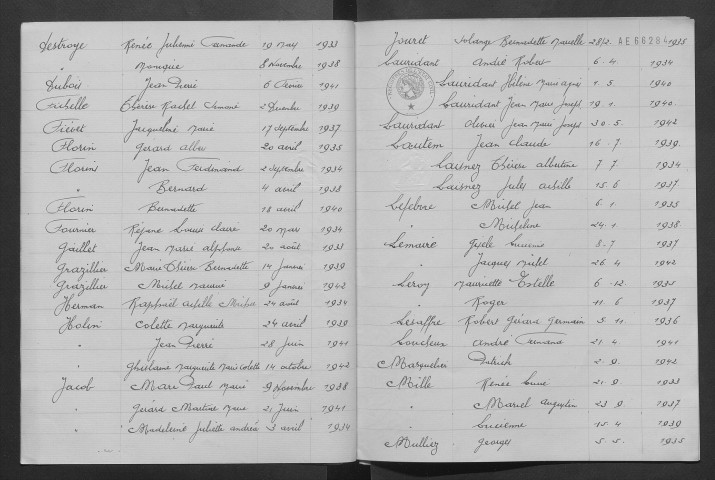 Destroye Renée Julienne Fernande 19 Mars 1933
" Monique 8 Novembre 1938
Dubois Jean Pierre 6 Février 1941
Faidelle Thérèse Rachel Simone 2 Décembre 1939
Fiévet Jacqueline Marie 17 septembre 1937
Florin Gérard albert 20 avril 1935
Florin Jean Ferdinand 2 septembre 1934
" Bernard 4 avril 1938
Florin Bernadette 18 avril 1940
Fournier Rejane Louise Claire 20 mars 1934
Gaillet Jean Marie alphonse 20 août 1933
Grazillier Marie Thérèse Bernadette 14 Janvier 1939
Grazillier Michel Maurice 9 Janvier 1942
Herman Raphaël achille Michel 24 août 1934
Holin Colette Marguerite 24 avril 1939
" Jean Pierre 28 Juin 1941
" Ghislaine Marguerite Marie Colette 14 octobre 1942
Jacob Marc Paul Marie 9 Novembre 1938
" Gérard Martine Marie 21 Juin 1941
" Madeleine Juliette andrée 3 avril 1934
Jouret Solange Bernadette 28/2 AE66284 1935
Lauridant André Robert 6.4 1934
Lauridant Hélène Marie 1.5 1940
Lauridant Jean Marie Joseph 19.1 1940
Lauridant Olivier Jean Marie Joseph 30.5 1942
Lautem Jean Claude 16.7 1939
Lausnez Thérèse albertine 7.7 1934
Lausnez Jules achille 15.6 1937
Lefebvre Michel Jean 6.1 1935
" Micheline 24.1 1938
Lemaire Gisèle 1937
" Jacques Michel 26.4 1942
Leroy Mauricette Estelle 6.12 1935
" Roger 11.6 1937
Lesaffre Robert Gérard Germain 3.11 1936
Loucheux André 21.4 1941
Masquelier Patrick 2.9 1942
Mille Renée 21.9 1933
" Marcel Augustin 23.9 1937
" Lucienne 15.4 1939
Mulliez Georges 5.5 1935